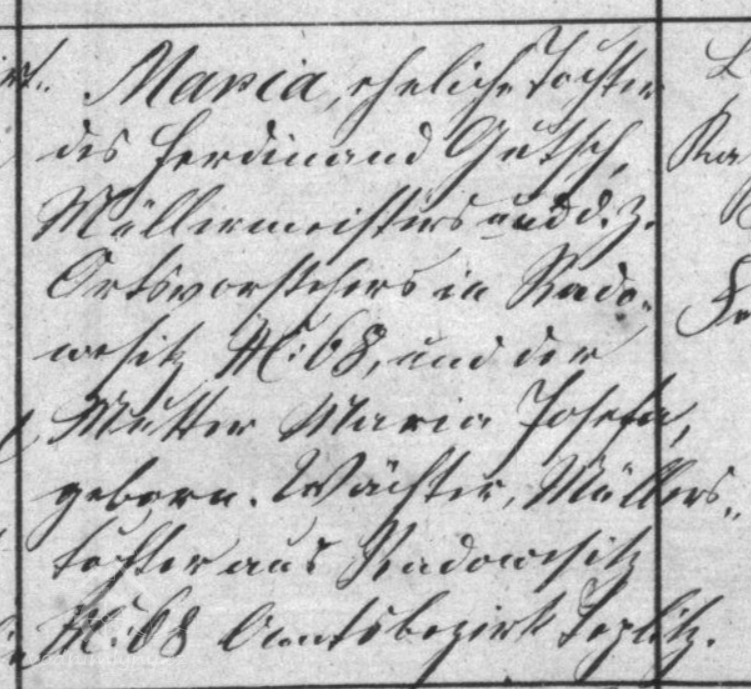 Maria, eheliche Tochter
des Ferdinand Gutsch,
Müllermeisters und d. Z.
Ortsvorstehers in Rado-
wesitz N: 68, und der
Mutter Maria Josefa,
geborn. Wächter, Müllers-
tochter aus Radowesitz
N: 68 Amtsbezirk Teplitz.